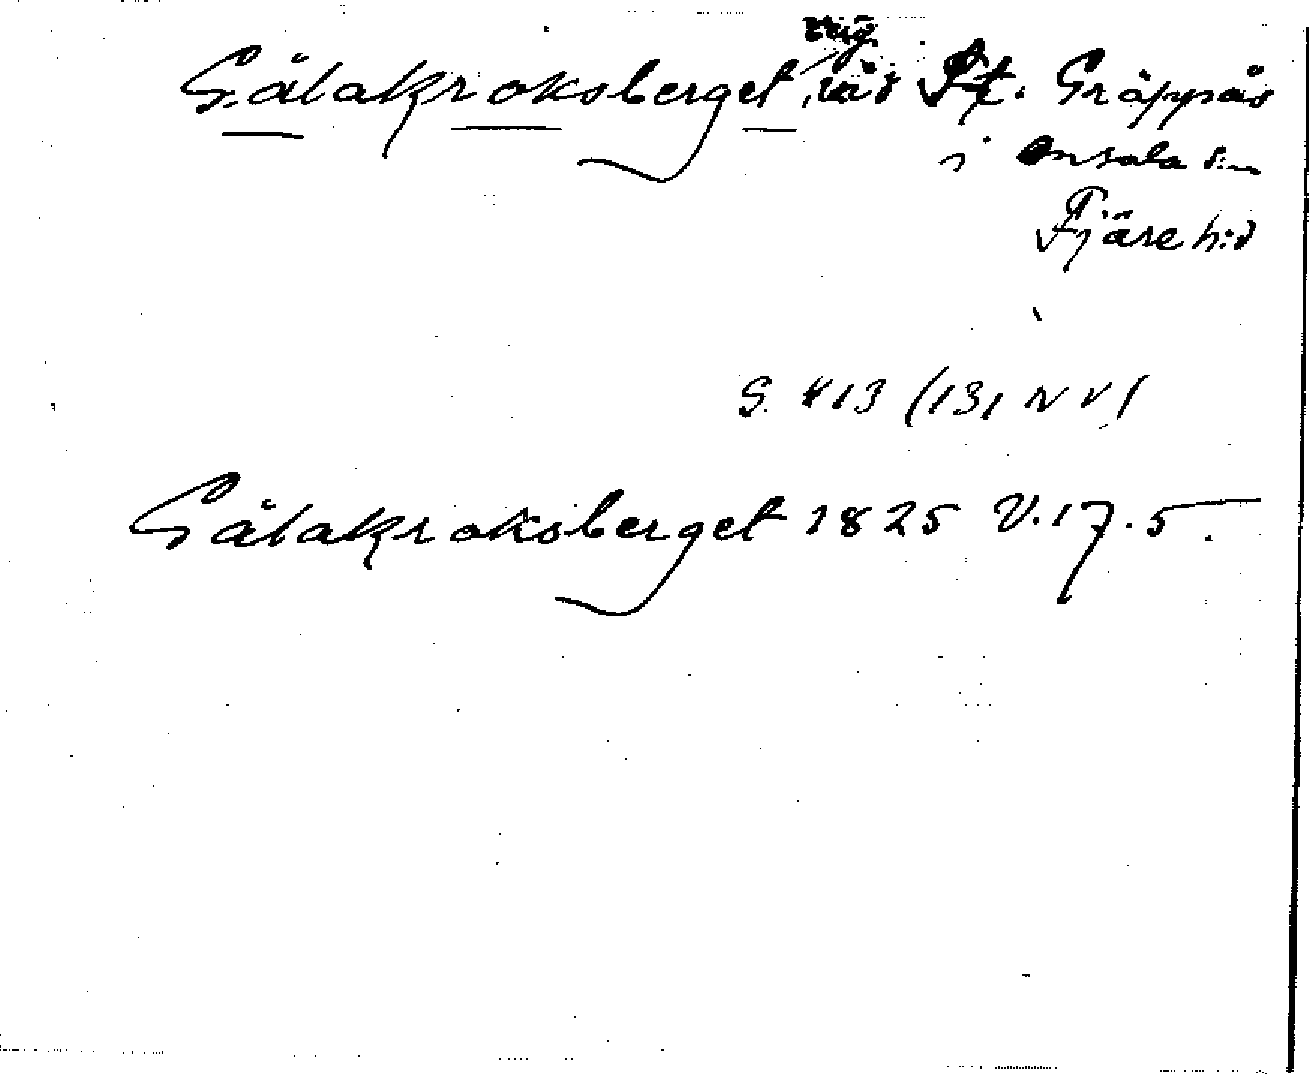 Gåtakroksberget vid St. Gräppås
i Onsala sn
Fjäre h:d
S. 413 (131 NV)
Gåtakroksberget 1825 V.17.5.